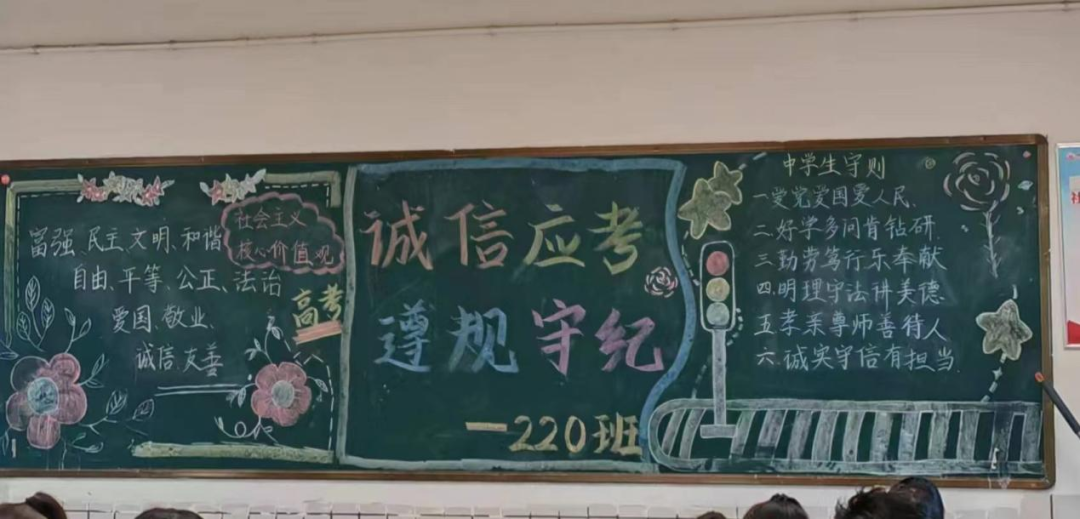 社会主义
核心价值观
富强、民主、文明、和谐
自由、平等、公正、法治
爱国、敬业、
诚信、友善
高考
诚信应考
遵规守纪
一220班
中学生守则
一爱党爱国爱人民、
二好学多问肯钻研
三勤劳笃行乐奉献
四明理守法讲美德
五孝亲尊师善待人
六、诚实守信有担当